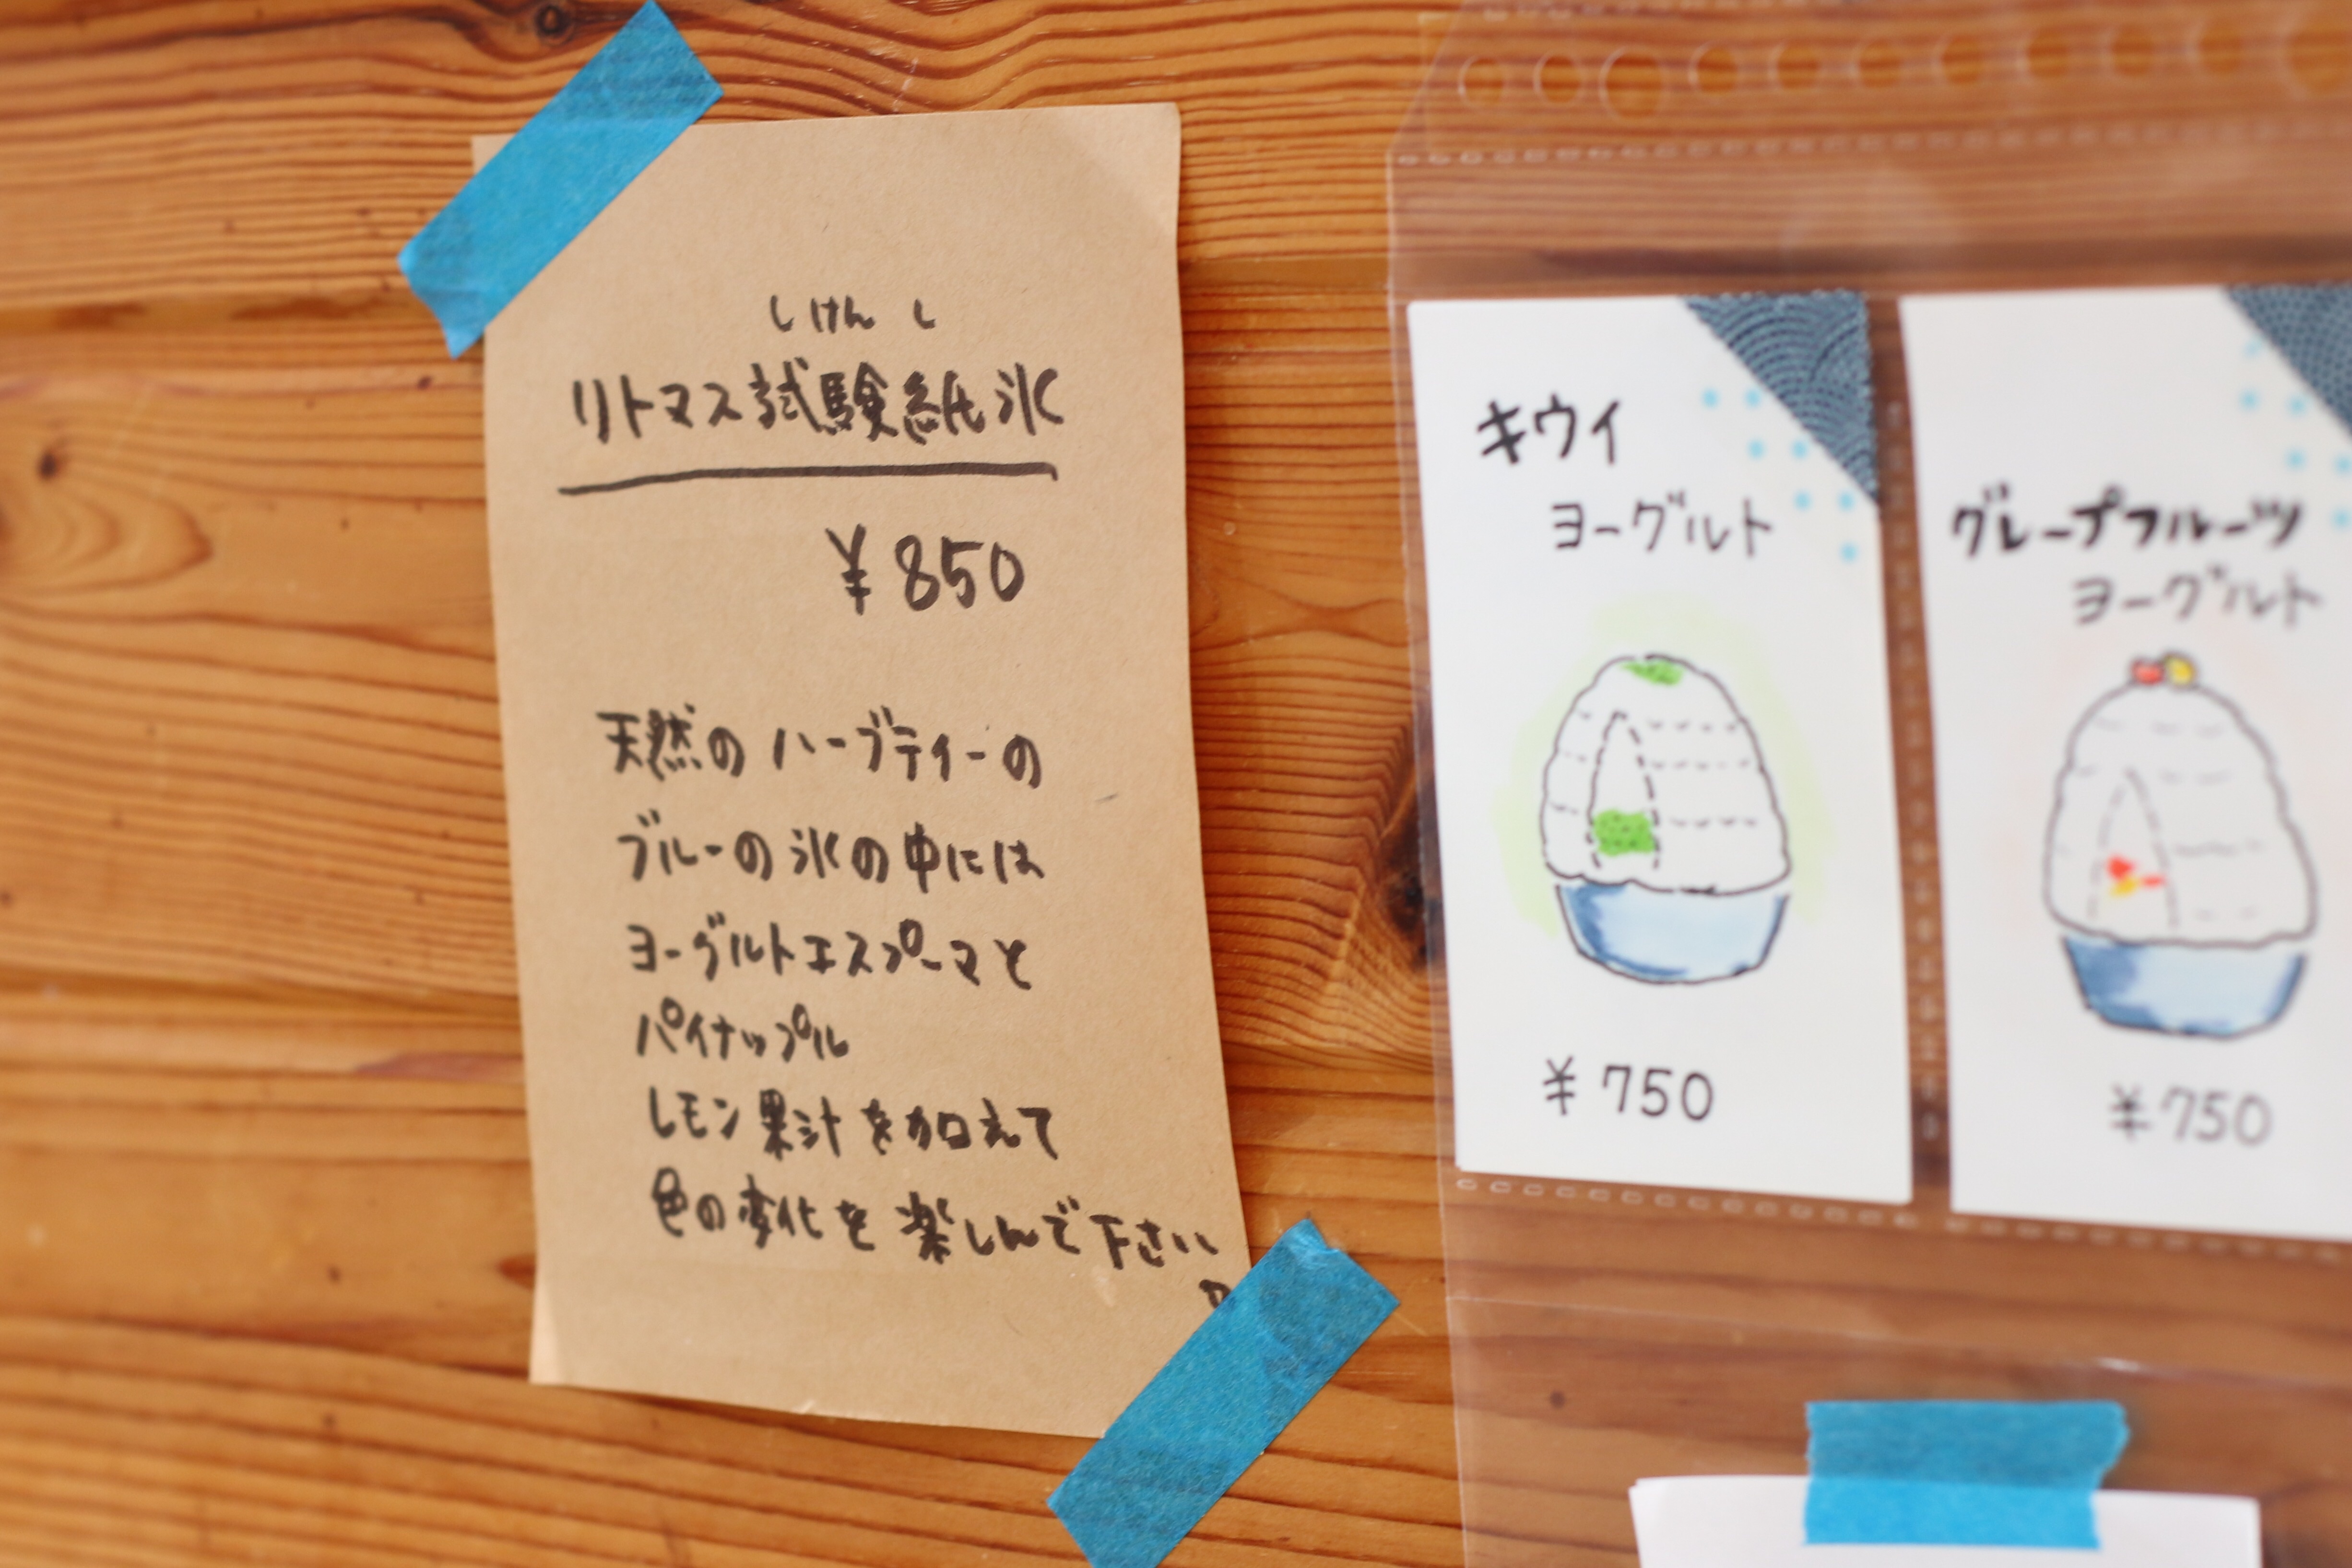 しけんし
リトマス試験紙氷
¥850
天然のハーブティーの
ブルーの氷の中には
ヨーグルトエスプーマと
パイナップル
レモン果汁を加えて
色の変化を楽しんで下さい
キウイ
ヨーグルト
¥750
グレープフルーツ
ヨーグルト
¥750